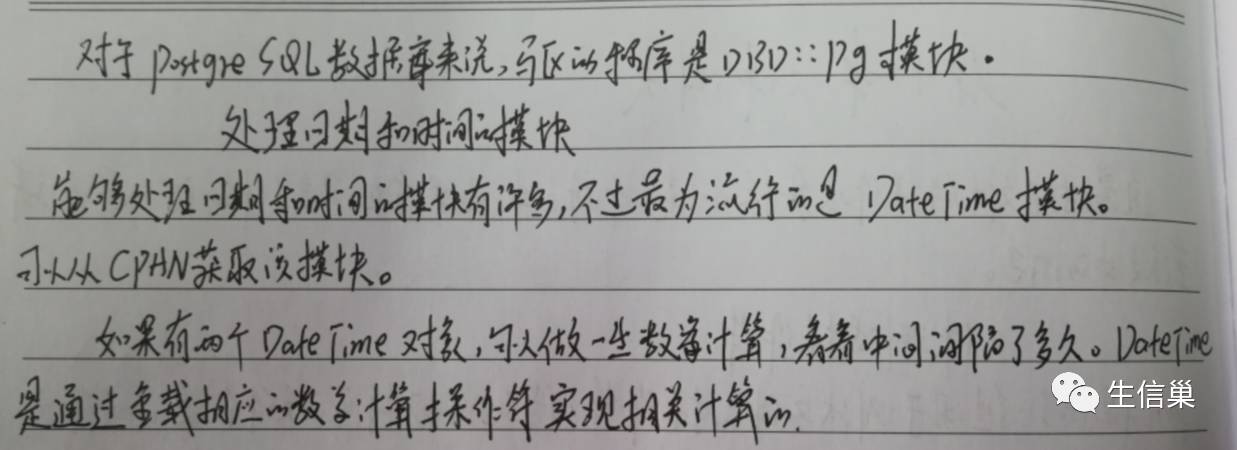 对于 PostgreSQL数据库来说,写区的程序是DBD::Pg模块。
处理日期和时间的模块
能够处理日期和时间的模块有许多,不过最为流行的是 DateTime 模块。
可以从CPAN获取该模块。
如果有两个DateTime对象,可以做一些数学计算,看看中间间隔了多久。DateTime
是通过重载相应的数学计算操作符实现相关计算的.
生信巢